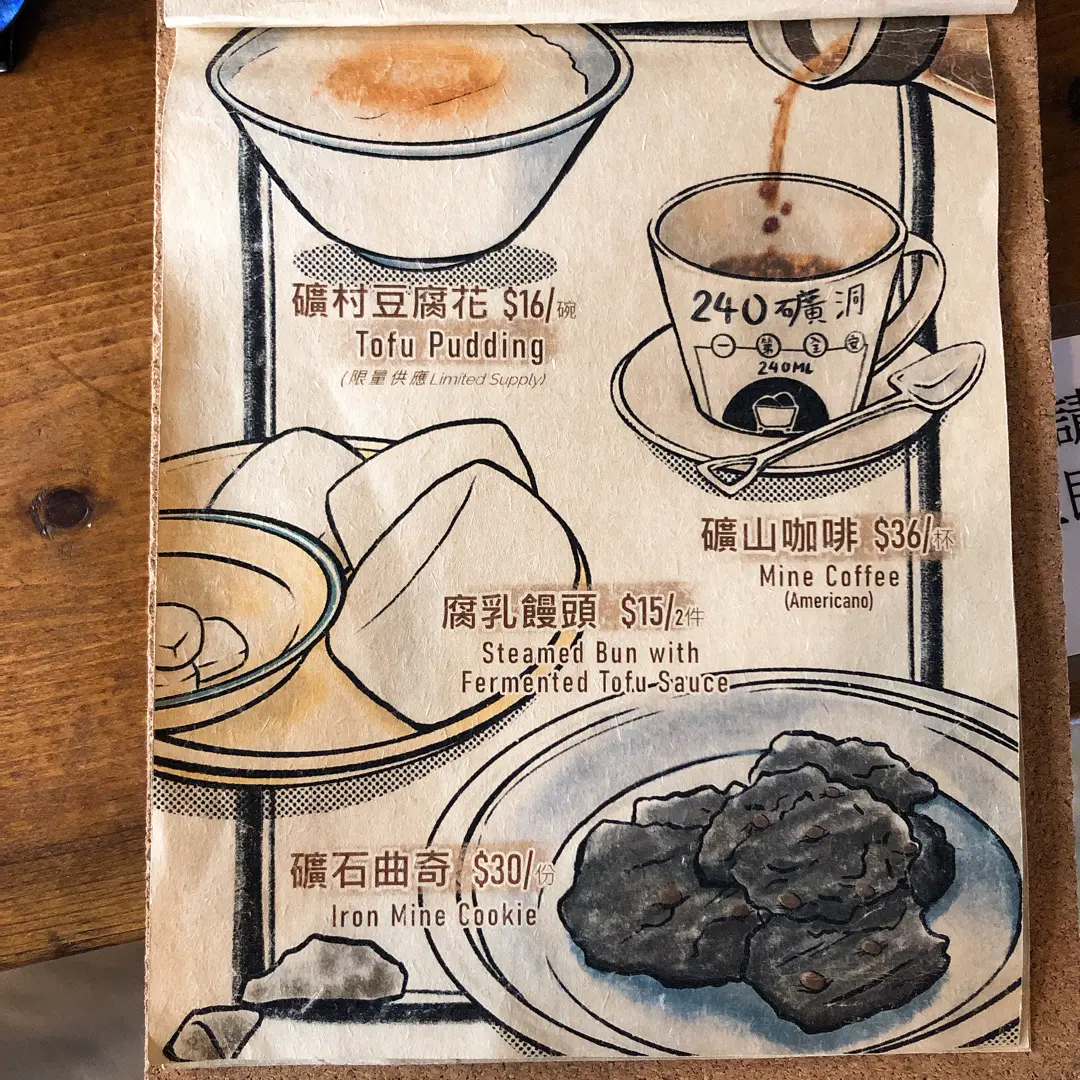 礦村豆腐花 $16/碗
Tofu Pudding
(限量供應 Limited Supply)
240礦洞
一 第 全 安
240ML
礦山咖啡 $36/杯
Mine Coffee
(Americano)
腐乳饅頭 $15/2件
Steamed Bun with
Fermented Tofu Sauce
礦石曲奇 $30/份
Iron Mine Cookie